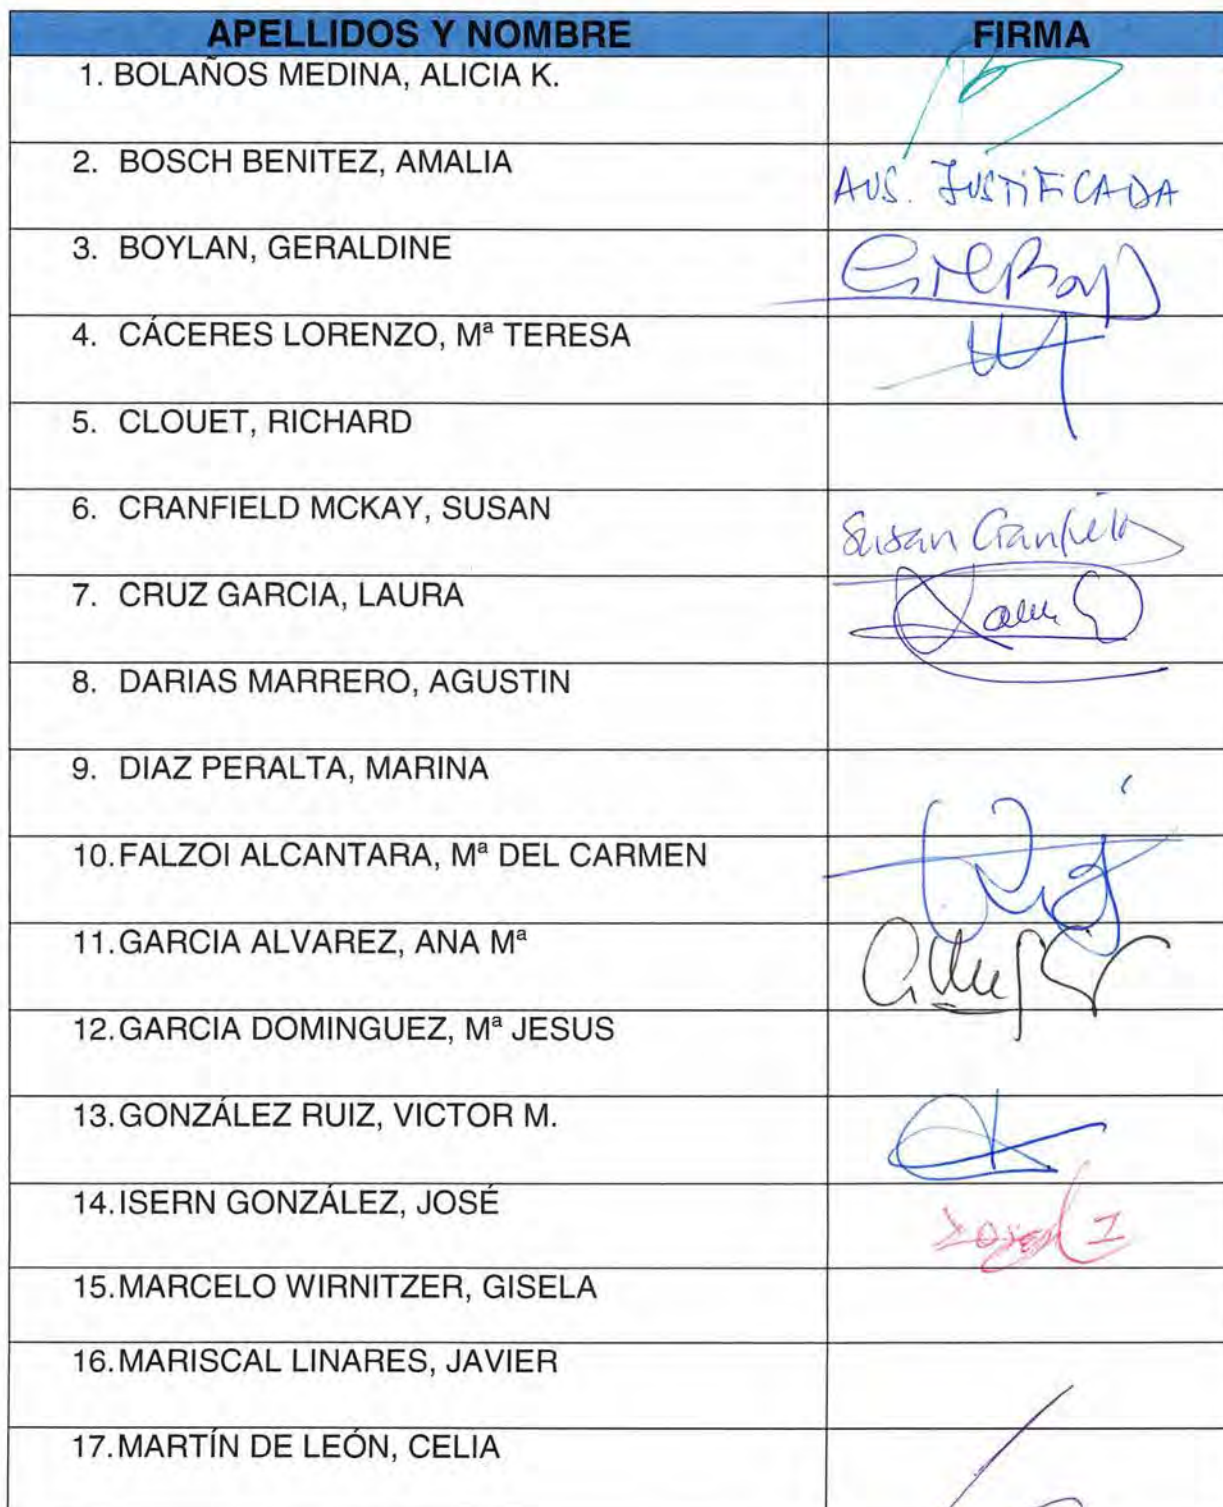 APELLIDOS Y NOMBRE FIRMA
1. BOLAÑOS MEDINA, ALICIA K.
2. BOSCH BENITEZ, AMALIA AUS. JUSTIFICADA
3. BOYLAN, GERALDINE
4. CÁCERES LORENZO, Mª TERESA
5. CLOUET, RICHARD
6. CRANFIELD MCKAY, SUSAN Susan Cranfield
7. CRUZ GARCIA, LAURA
8. DARIAS MARRERO, AGUSTIN
9. DIAZ PERALTA, MARINA
10. FALZOI ALCANTARA, Mª DEL CARMEN
11. GARCIA ALVAREZ, ANA Mª
12. GARCIA DOMINGUEZ, Mª JESUS
13. GONZÁLEZ RUIZ, VICTOR M.
14. ISERN GONZÁLEZ, JOSÉ
15. MARCELO WIRNITZER, GISELA
16. MARISCAL LINARES, JAVIER
17. MARTÍN DE LEÓN, CELIA